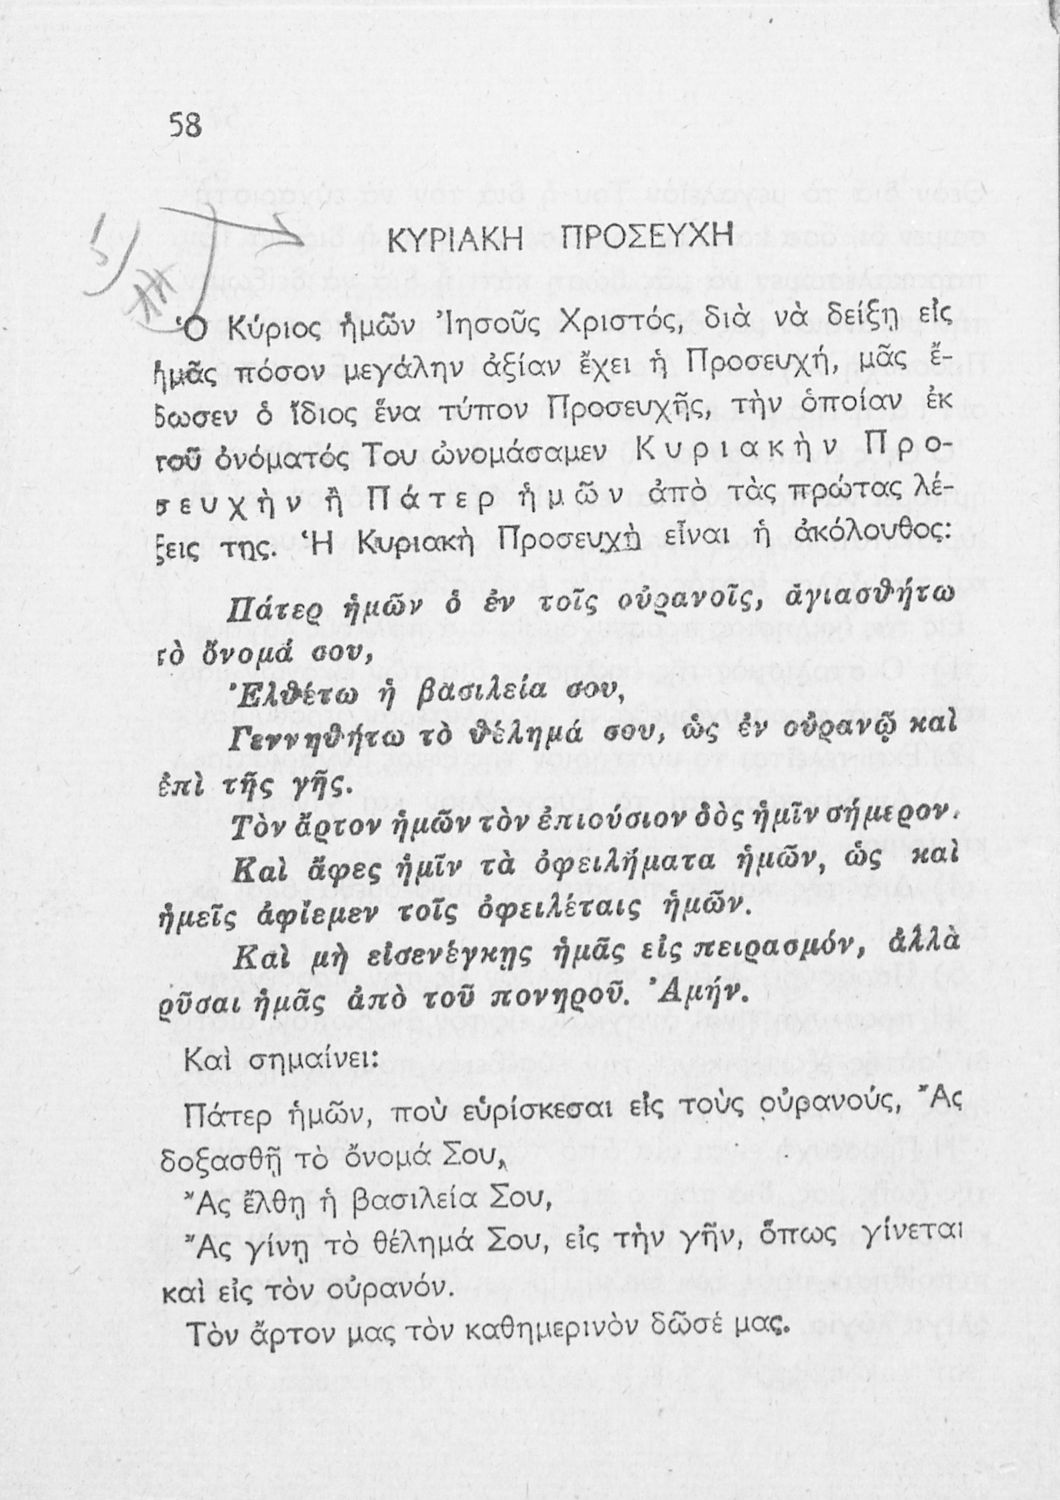 58
ΚΥΡΙΑΚΗ ΠΡΟΣΕΥΧΗ
Ὁ Κύριος ἡμῶν Ἰησοῦς Χριστός, διὰ νὰ δείξῃ εἰς
ἡμᾶς πόσον μεγάλην ἀξίαν ἔχει ἡ Προσευχή, μᾶς ἔ-
δωσεν ὁ ἴδιος ἕνα τύπον Προσευχῆς, τὴν ὁποίαν ἐκ
τοῦ ὀνόματός Του ὠνομάσαμεν Κυριακὴν Προ-
σευχὴν ἢ Πάτερ ἡμῶν ἀπὸ τὰς πρώτας λέ-
ξεις της. Ἡ Κυριακὴ Προσευχὴ εἶναι ἡ ἀκόλουθος:
Πάτερ ἡμῶν ὁ ἐν τοῖς οὐρανοῖς, ἁγιασθήτω
τὸ ὄνομά σου,
Ἐλθέτω ἡ βασιλεία σου,
Γεννηθήτω τὸ θέλημά σου, ὡς ἐν οὐρανῷ καὶ
ἐπὶ τῆς γῆς.
Τὸν ἄρτον ἡμῶν τὸν ἐπιούσιον δὸς ἡμῖν σήμερον.
Καὶ ἄφες ἡμῖν τὰ ὀφειλήματα ἡμῶν, ὡς καὶ
ἡμεῖς ἀφίεμεν τοῖς ὀφειλέταις ἡμῶν.
Καὶ μὴ εἰσενέγκῃς ἡμᾶς εἰς πειρασμόν, ἀλλὰ
ρῦσαι ἡμᾶς ἀπὸ τοῦ πονηροῦ. Ἀμήν.
Καὶ σημαίνει:
Πάτερ ἡμῶν, ποὺ εὑρίσκεσαι εἰς τοὺς οὐρανούς, Ἂς
δοξασθῇ τὸ ὄνομά Σου,
Ἂς ἔλθῃ ἡ βασιλεία Σου,
Ἂς γίνῃ τὸ θέλημά Σου, εἰς τὴν γῆν, ὅπως γίνεται
καὶ εἰς τὸν οὐρανόν.
Τὸν ἄρτον μας τὸν καθημερινὸν δῶσέ μας.